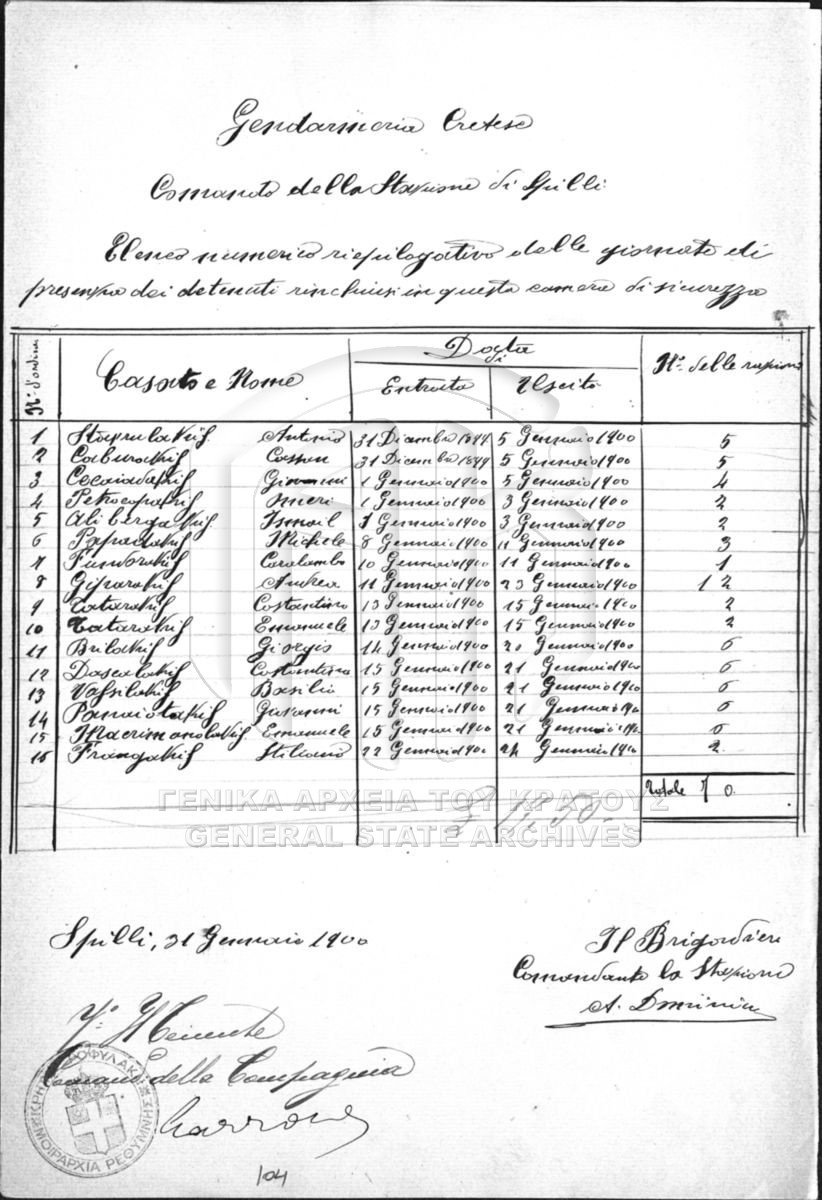 Gendarmeria Cretese
Comando della Stazione di Spilli
Elenco numerico riepilogativo delle giornate di
presenza dei detenuti rinchiusi in questa camera di sicurezza
N.° d'ordine Casato e Nome Data di Entrata Uscita N.° delle razioni
1 Stavrulakis Antonio 31 Dicembre 1899 5 Gennaio 1900 5
2 31 Dicembre 1899 5 Gennaio 1900 5
3 Giovanni 1 Gennaio 1900 5 Gennaio 1900 4
4 Imeri 1 Gennaio 1900 3 Gennaio 1900 2
5 Ismail 1 Gennaio 1900 3 Gennaio 1900 2
6 Papadakis Michele 8 Gennaio 1900 11 Gennaio 1900 3
7 Caralambo 10 Gennaio 1900 11 Gennaio 1900 1
8 Giparakis Andrea 11 Gennaio 1900 23 Gennaio 1900 12
9 Tatarakis Costantino 13 Gennaio 1900 15 Gennaio 1900 2
10 Tatarakis Emanuele 13 Gennaio 1900 15 Gennaio 1900 2
11 Brilakis Giorgio 14 Gennaio 1900 20 Gennaio 1900 6
12 Dascalakis Costantino 15 Gennaio 1900 21 Gennaio 1900 6
13 Vassilakis Basilio 15 Gennaio 1900 21 Gennaio 1900 6
14 Panaiotakis Giovanni 15 Gennaio 1900 21 Gennaio 1900 6
15 Macrimanolakis Emanuele 15 Gennaio 1900 21 Gennaio 1900 6
16 Frangakis Stiliano 22 Gennaio 1900 24 Gennaio 1900 2
Totale 70
ΓΕΝΙΚΑ ΑΡΧΕΙΑ ΤΟΥ ΚΡΑΤΟΥΣ
GENERAL STATE ARCHIVES
Spilli, 31 Gennaio 1900
Il Brigadiere
Comandante la Stazione
A.
V.° Il Tenente
Comand. della Compagnia
ΜΟΙΡΑΡΧΙΑ ΡΕΘΥΜΝΗΣ
104